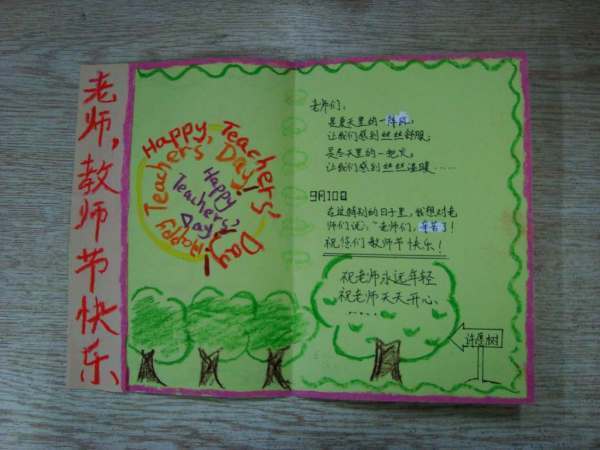 老师,教师节快乐
Happy Teacher's Day!
Happy Teacher's Day!
Happy Teacher's Day!
老师们,
是夏天里的一阵风,
让我们感到丝丝舒服,
是冬天里的一把火,
让我们感到丝丝温暖……
9月10日
在这特别的日子里,我想对老
师们说:“老师们,辛苦了!
祝你们教师节快乐!
祝老师永远年轻
祝老师天天开心、
……
许愿树